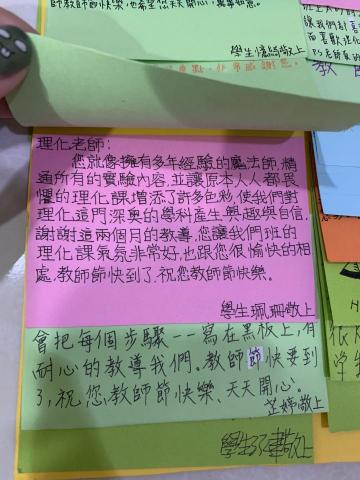 師教師節快樂,也希望您天天開心,萬事如意。
學生憶綺敬上
教
理化老師:
您就像擁有多年經驗的魔法師,精
通所有的實驗內容,並讓原本人人都畏
懼的理化課增添了許多色彩,使我們對
理化這門深奧的學科產生興趣與自信,
謝謝這兩個月的教導,您讓我們班的
理化課氣氛非常好,也跟您很愉快的相
處,教師節快到了,祝您教師節快樂。
學生珮珊敬上
會把每個步驟一一寫在黑板上,有
耐心的教導我們。教師節快要到
了,祝您教師節快樂、天天開心。
芷婷敬上
敬上